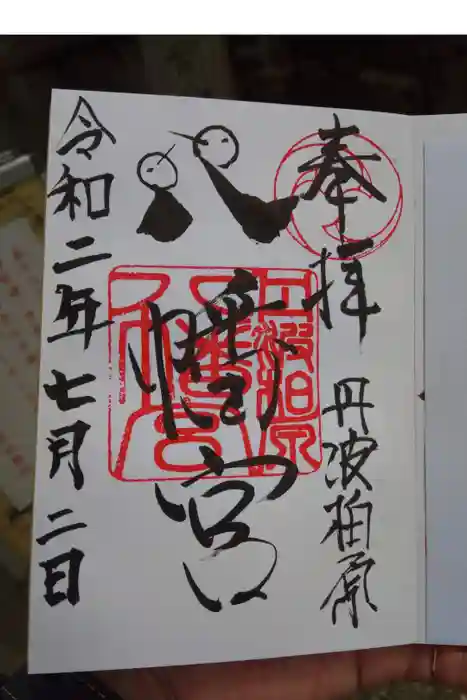 奉拝
丹波柏原
八幡宮
令和二年七月二日